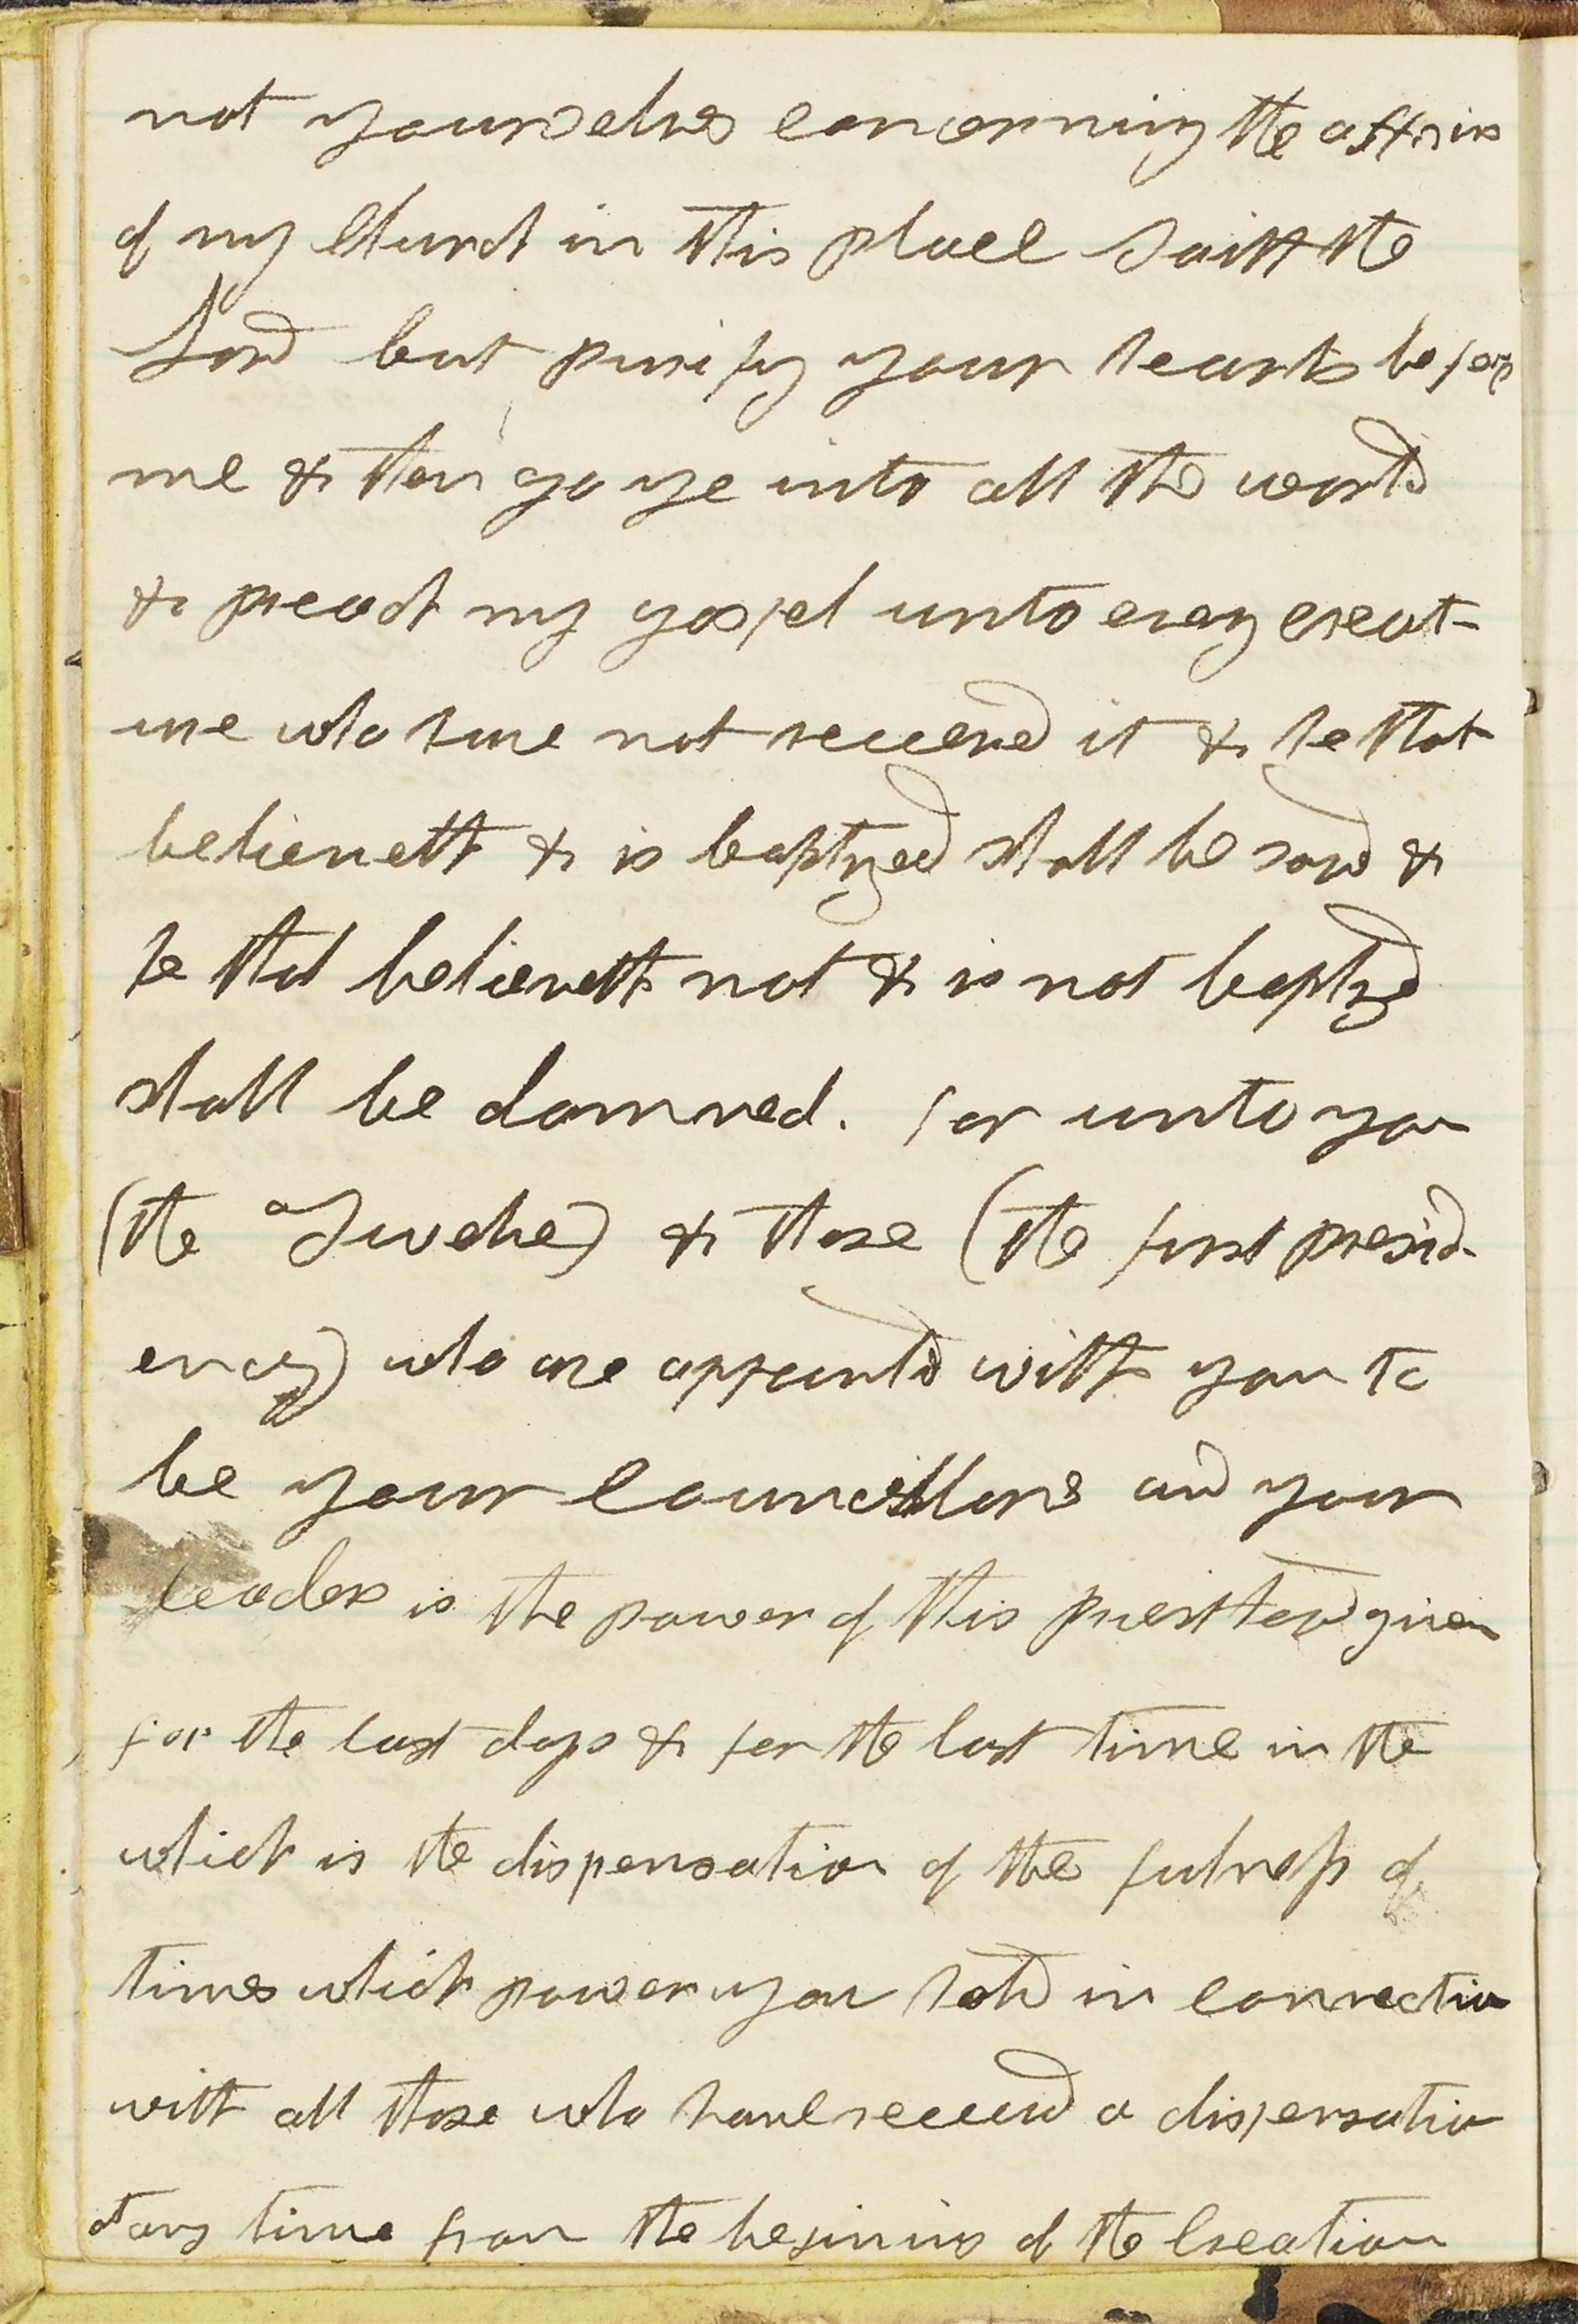 not yourselves concerning the affairs
of my Church in this place saith the
Lord but purify your hearts before
me & then go ye into all the world
& preach my gospel unto evey creat-
ure who have not received it & he that
believeth & is baptized shall be savd &
he that believeth not & is not baptzd
shall be damned. for unto you
(the Twelve) & those (the first presid-
ency) who are appointd with you to
be your councillors and your
leaders is the power of this priesthood given
for the last days & for the last time in the
which is the dispensation of the fulness of
times which power you hold in connection
with all those who have received a dispensation
at any time from the begining of the Creation